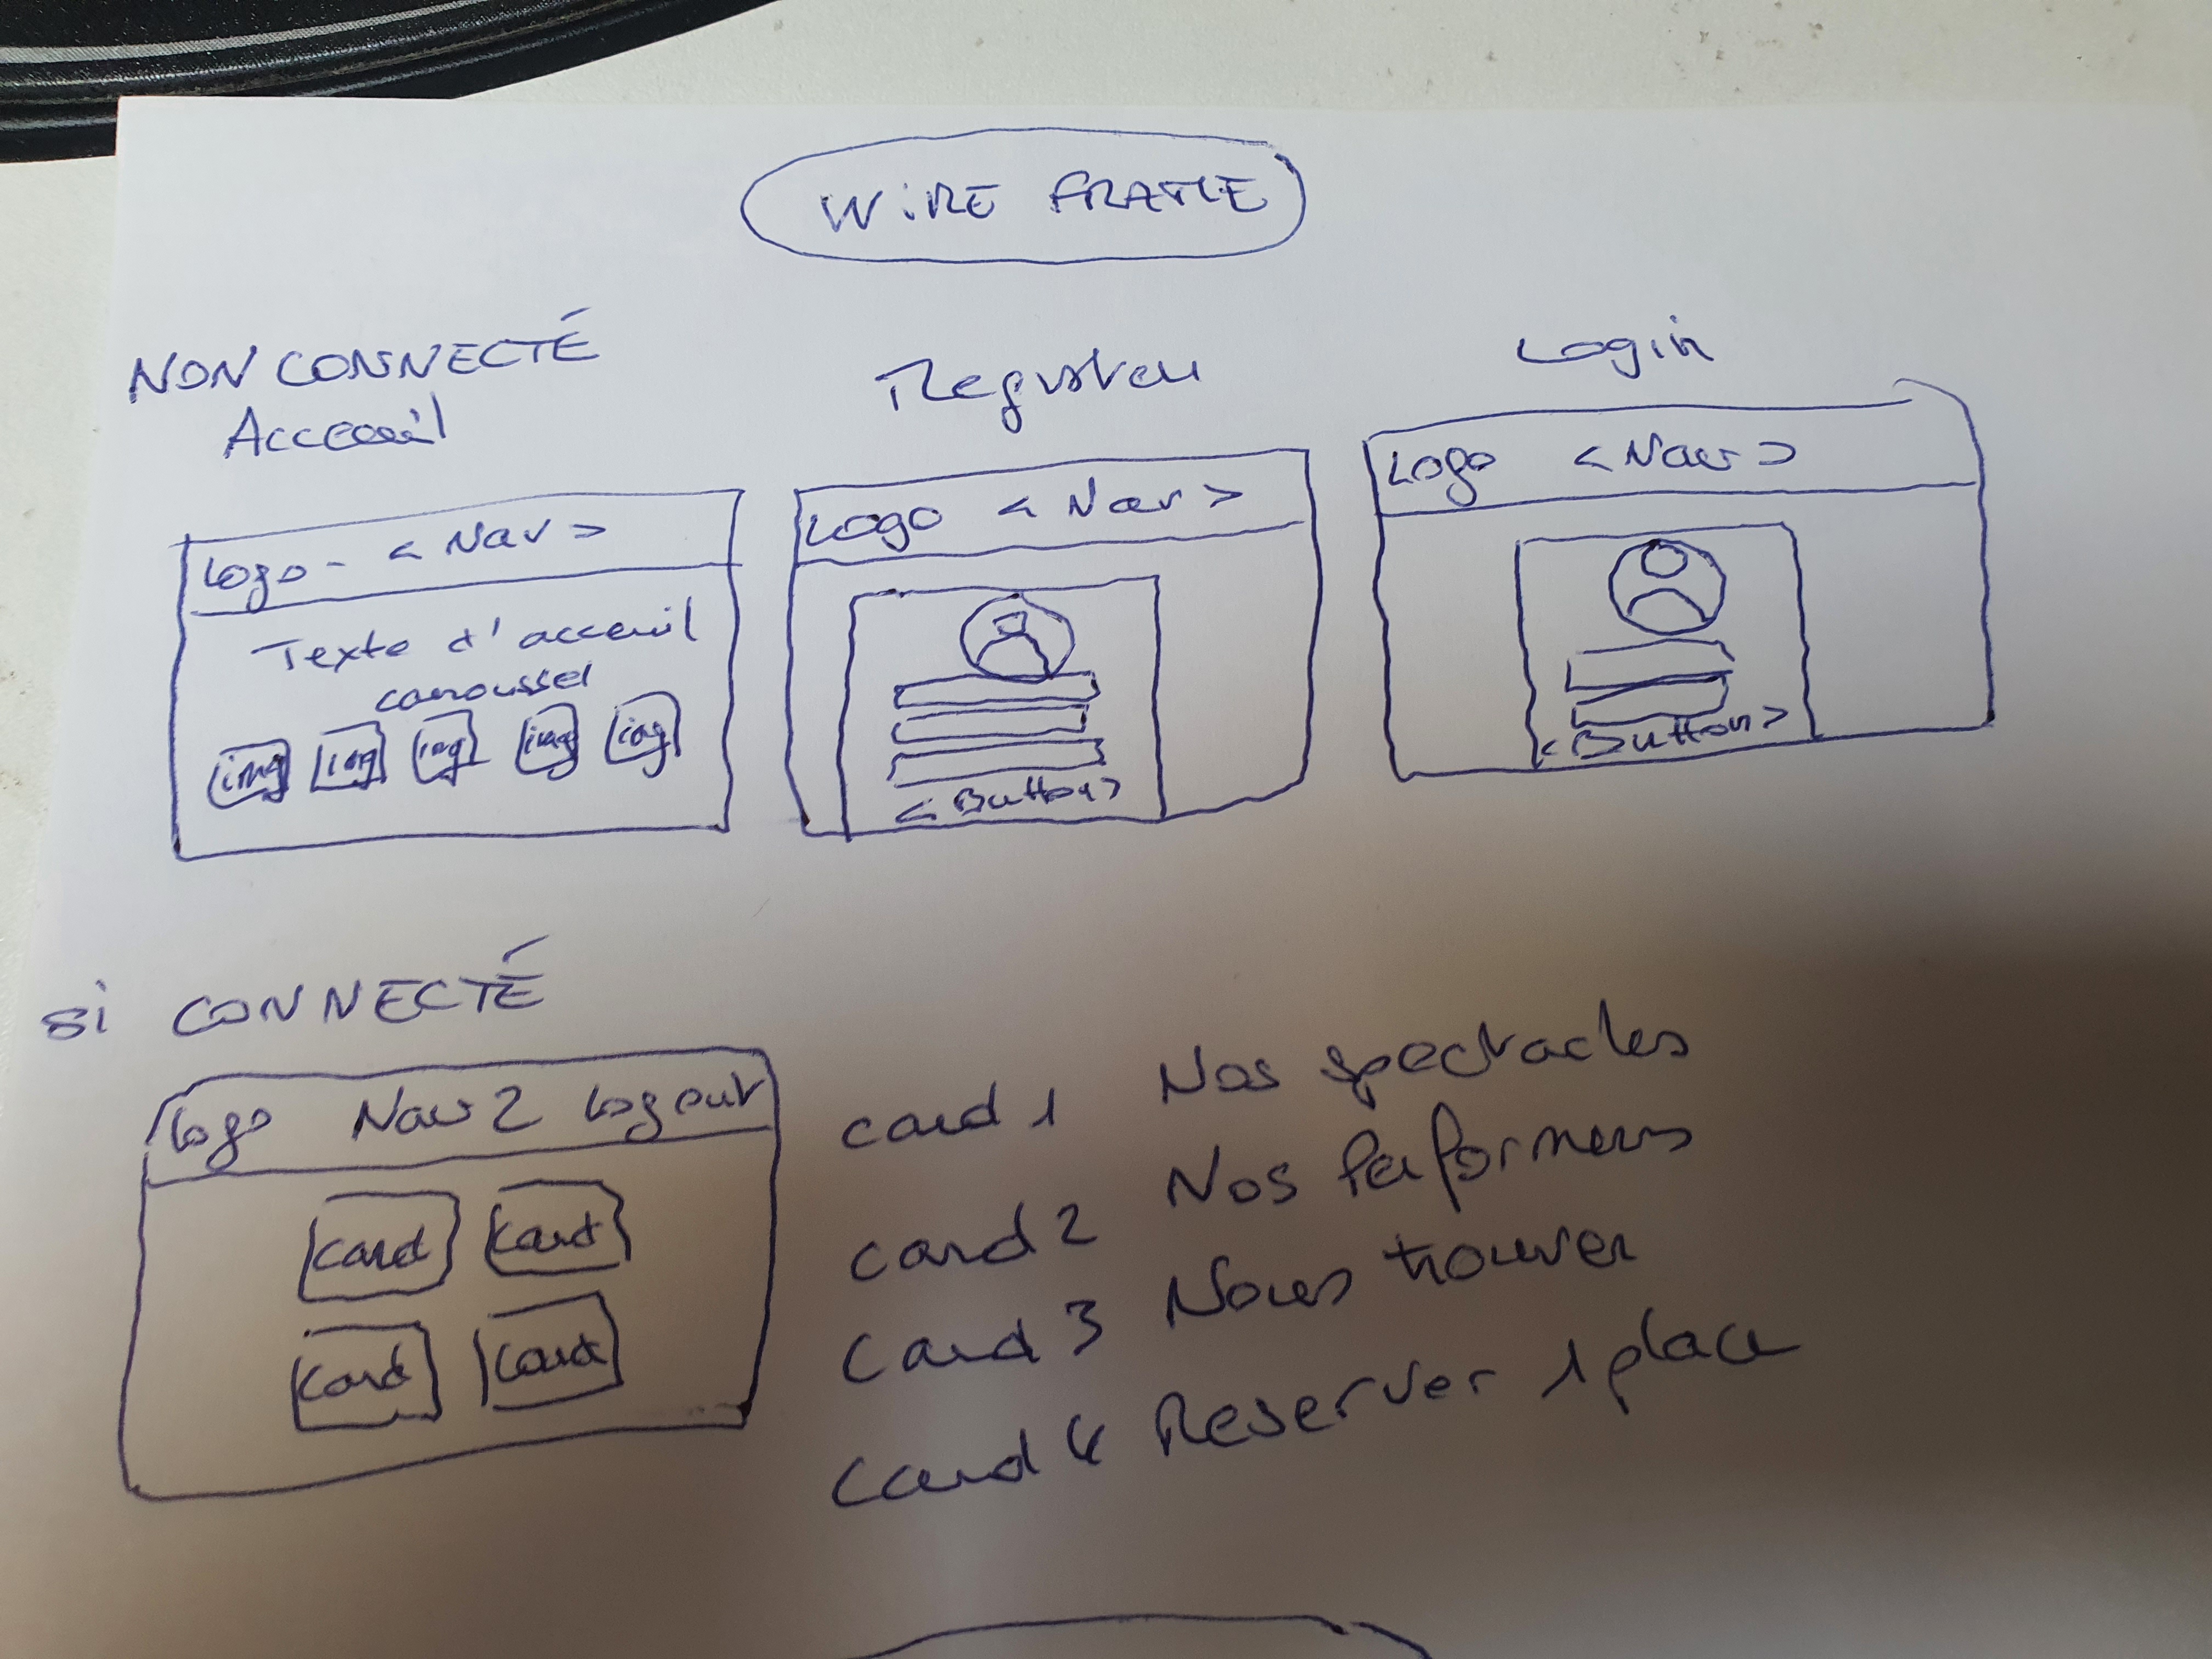 WIREFRAME
NON CONNECTÉ
Accueil
Register
Login
Logo - < Nav >
Texte d'accueil
caroussel
img img img img img
Logo < Nav >
< Button >
Logo < Nav >
< Button >
Si CONNECTÉ
Logo Nav 2 logout
card card
card card
card 1 Nos spectacles
card 2 Nos Performers
Card 3 Nous trouver
Card 4 Reserver 1 place